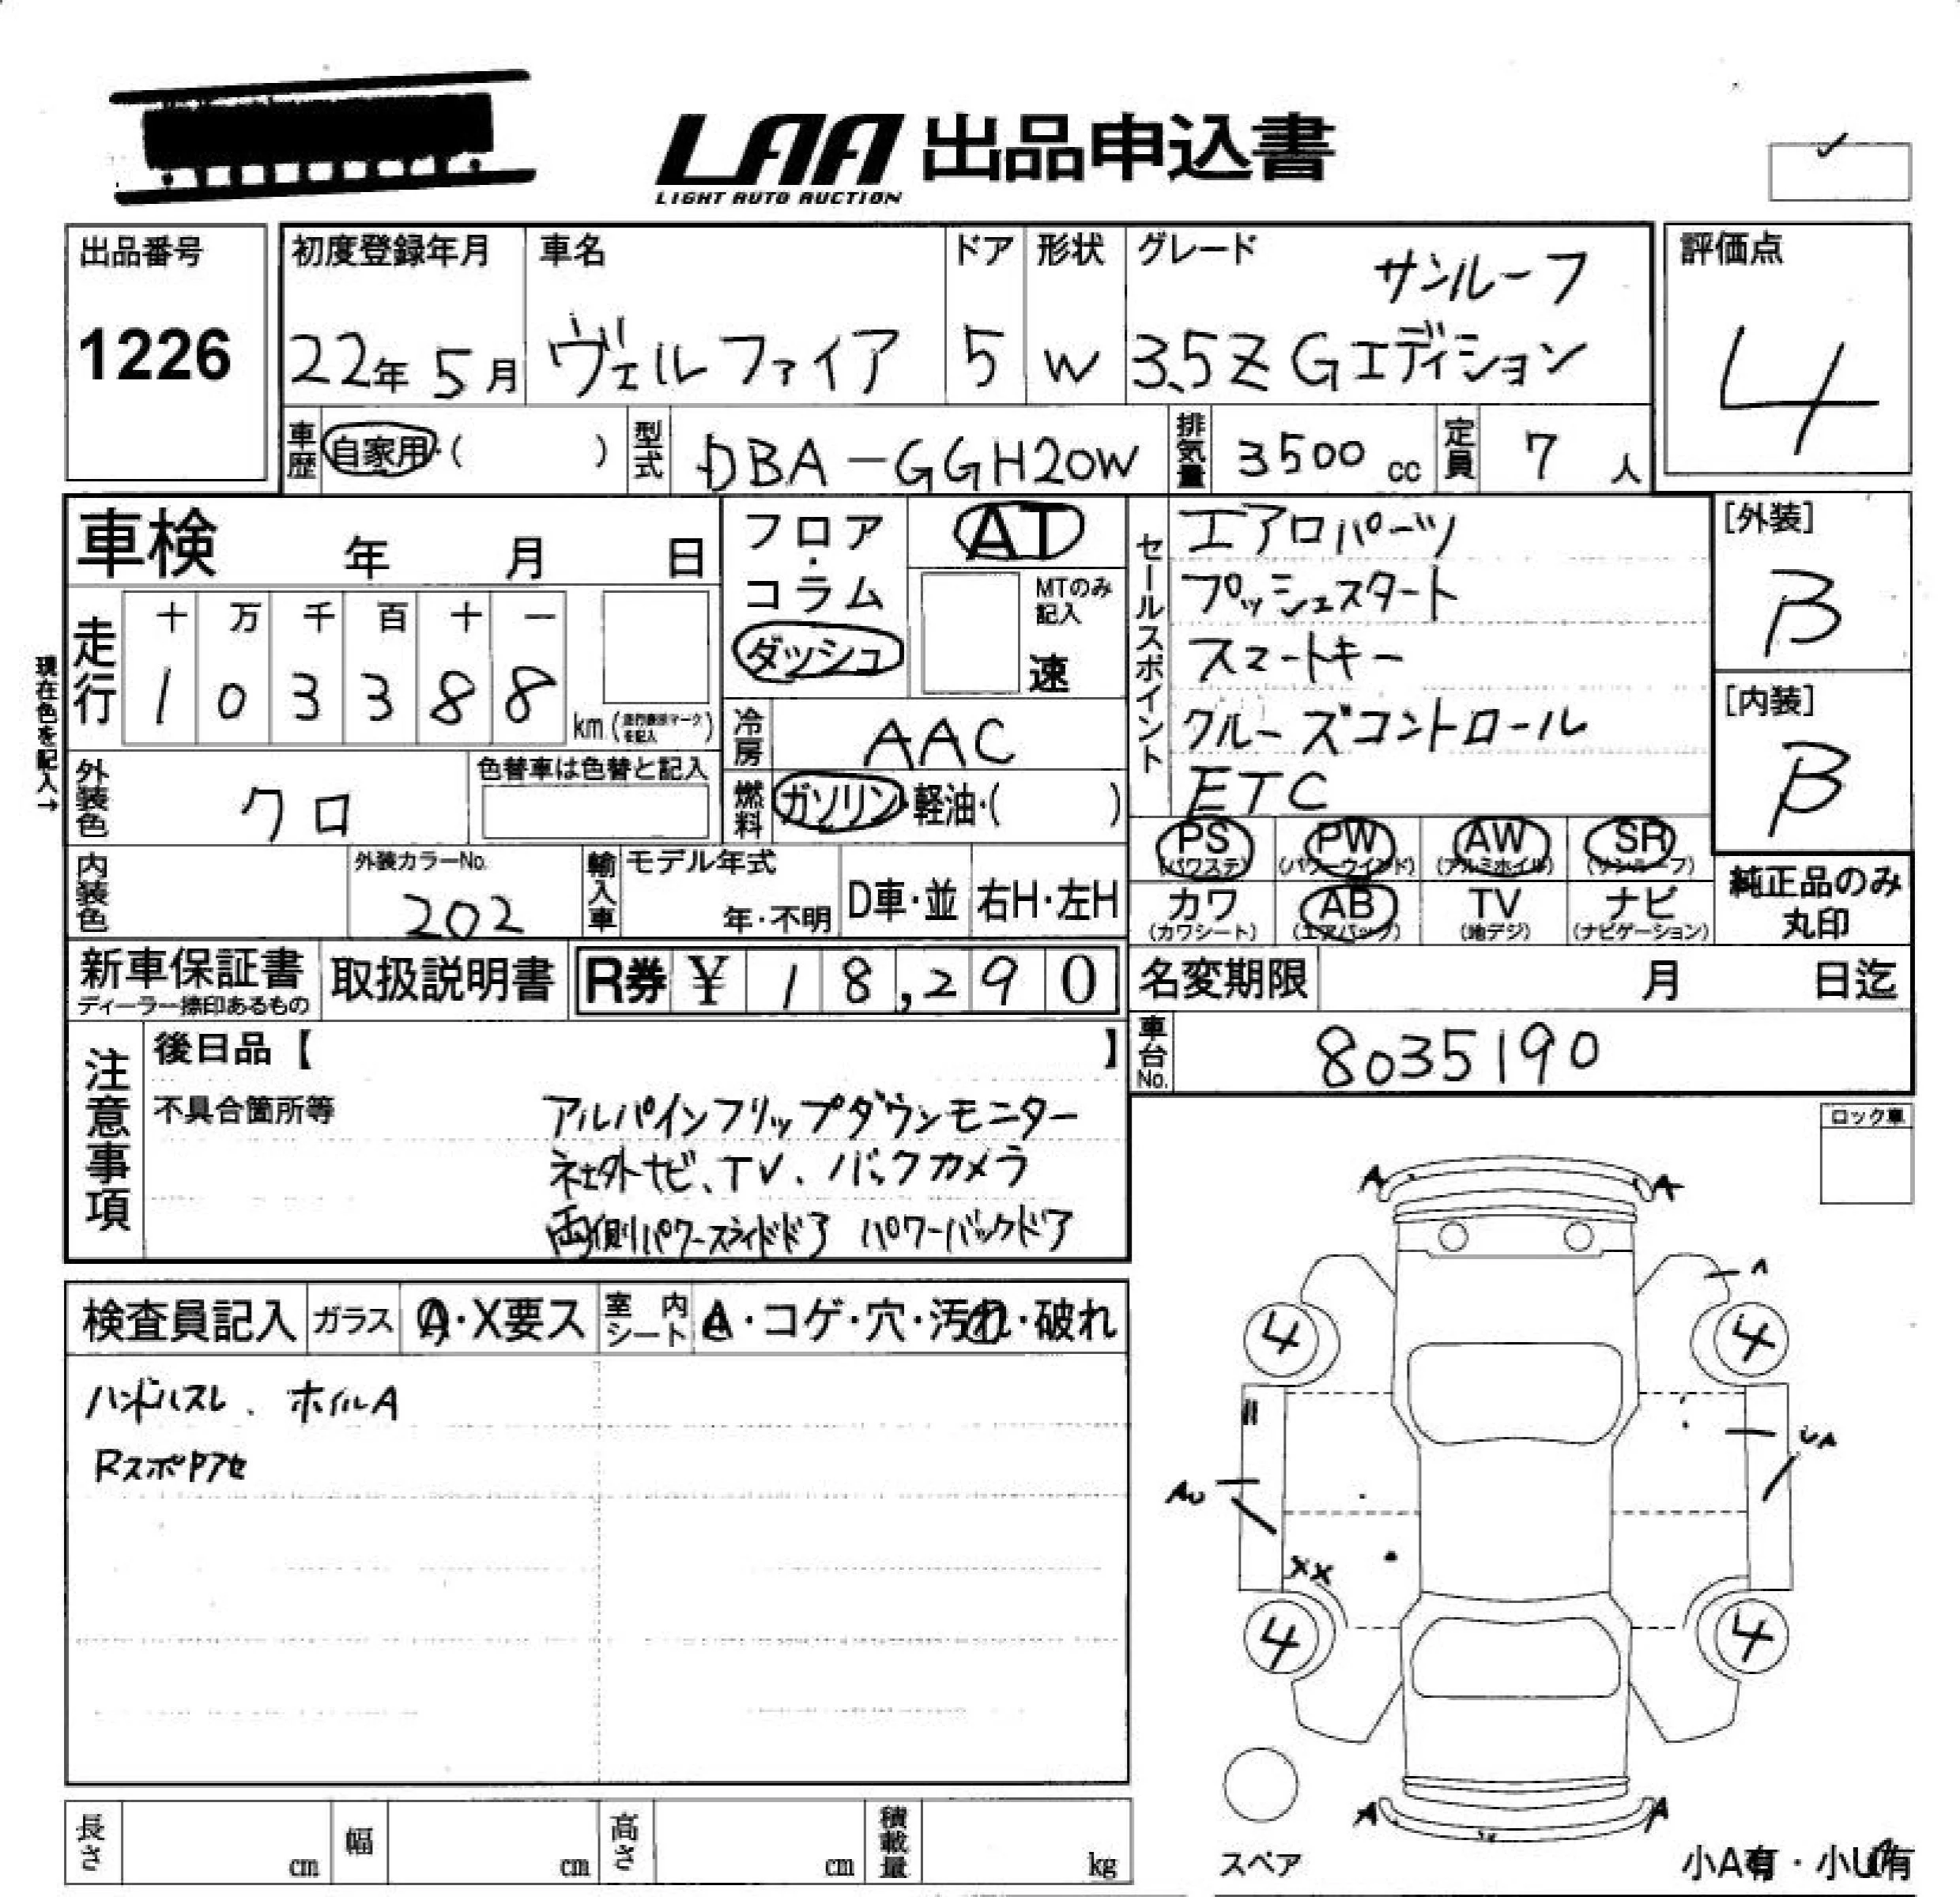 LAA 出品申込書
LIGHT AUTO AUCTION
出品番号
1226
初度登録年月
22年 5月
車名
ヴェルファイア
ドア
5
形状
W
グレード サンルーフ
3.5Z Gエディション
評価点
4
車歴 自家用・( )
型式 DBA-GGH20W
排気量 3500 cc
定員 7 人
車検 年 月 日
現在色を記入→
走行
十 万 千 百 十 一
1 0 3 3 8 8
km (走行メーター
を記入)
フロア
・
コラム
ダッシュ
AT
MTのみ
記入
速
冷房 AAC
燃料 ガソリン・軽油・( )
外装色 クロ
色替車は色替と記入
内装色
外装カラーNo.
202
輸入車
モデル年式
年・不明
D車・並
右H・左H
セールスポイント
エアロパーツ
プッシュスタート
スマートキー
クルーズコントロール
ETC
[外装]
B
[内装]
B
PS (パワステ)
PW (パワーウインド)
AW (アルミホイル)
SR (サンルーフ)
カワ (カワシート)
AB (エアバック)
TV (地デジ)
ナビ (ナビゲーション)
純正品のみ
丸印
新車保証書
ディーラー捺印あるもの
取扱説明書
R券 ¥ 18,290
名変期限 月 日迄
車台No. 8035190
注意事項
後日品【 】
不具合箇所等
アルパインフリップダウンモニター
社外ナビ、TV、バックカメラ
両側パワースライドドア パワーバックドア
ロック車
検査員記入
ガラス A・X要ス
室内シート A・コゲ・穴・汚れ・破れ
ハンドルスレ、ホイルA
A A
A
4 4
UA
AU
XX
4 4
A A
スペア
小A有・小U有
長さ cm
幅 cm
高さ cm
積載量 kg